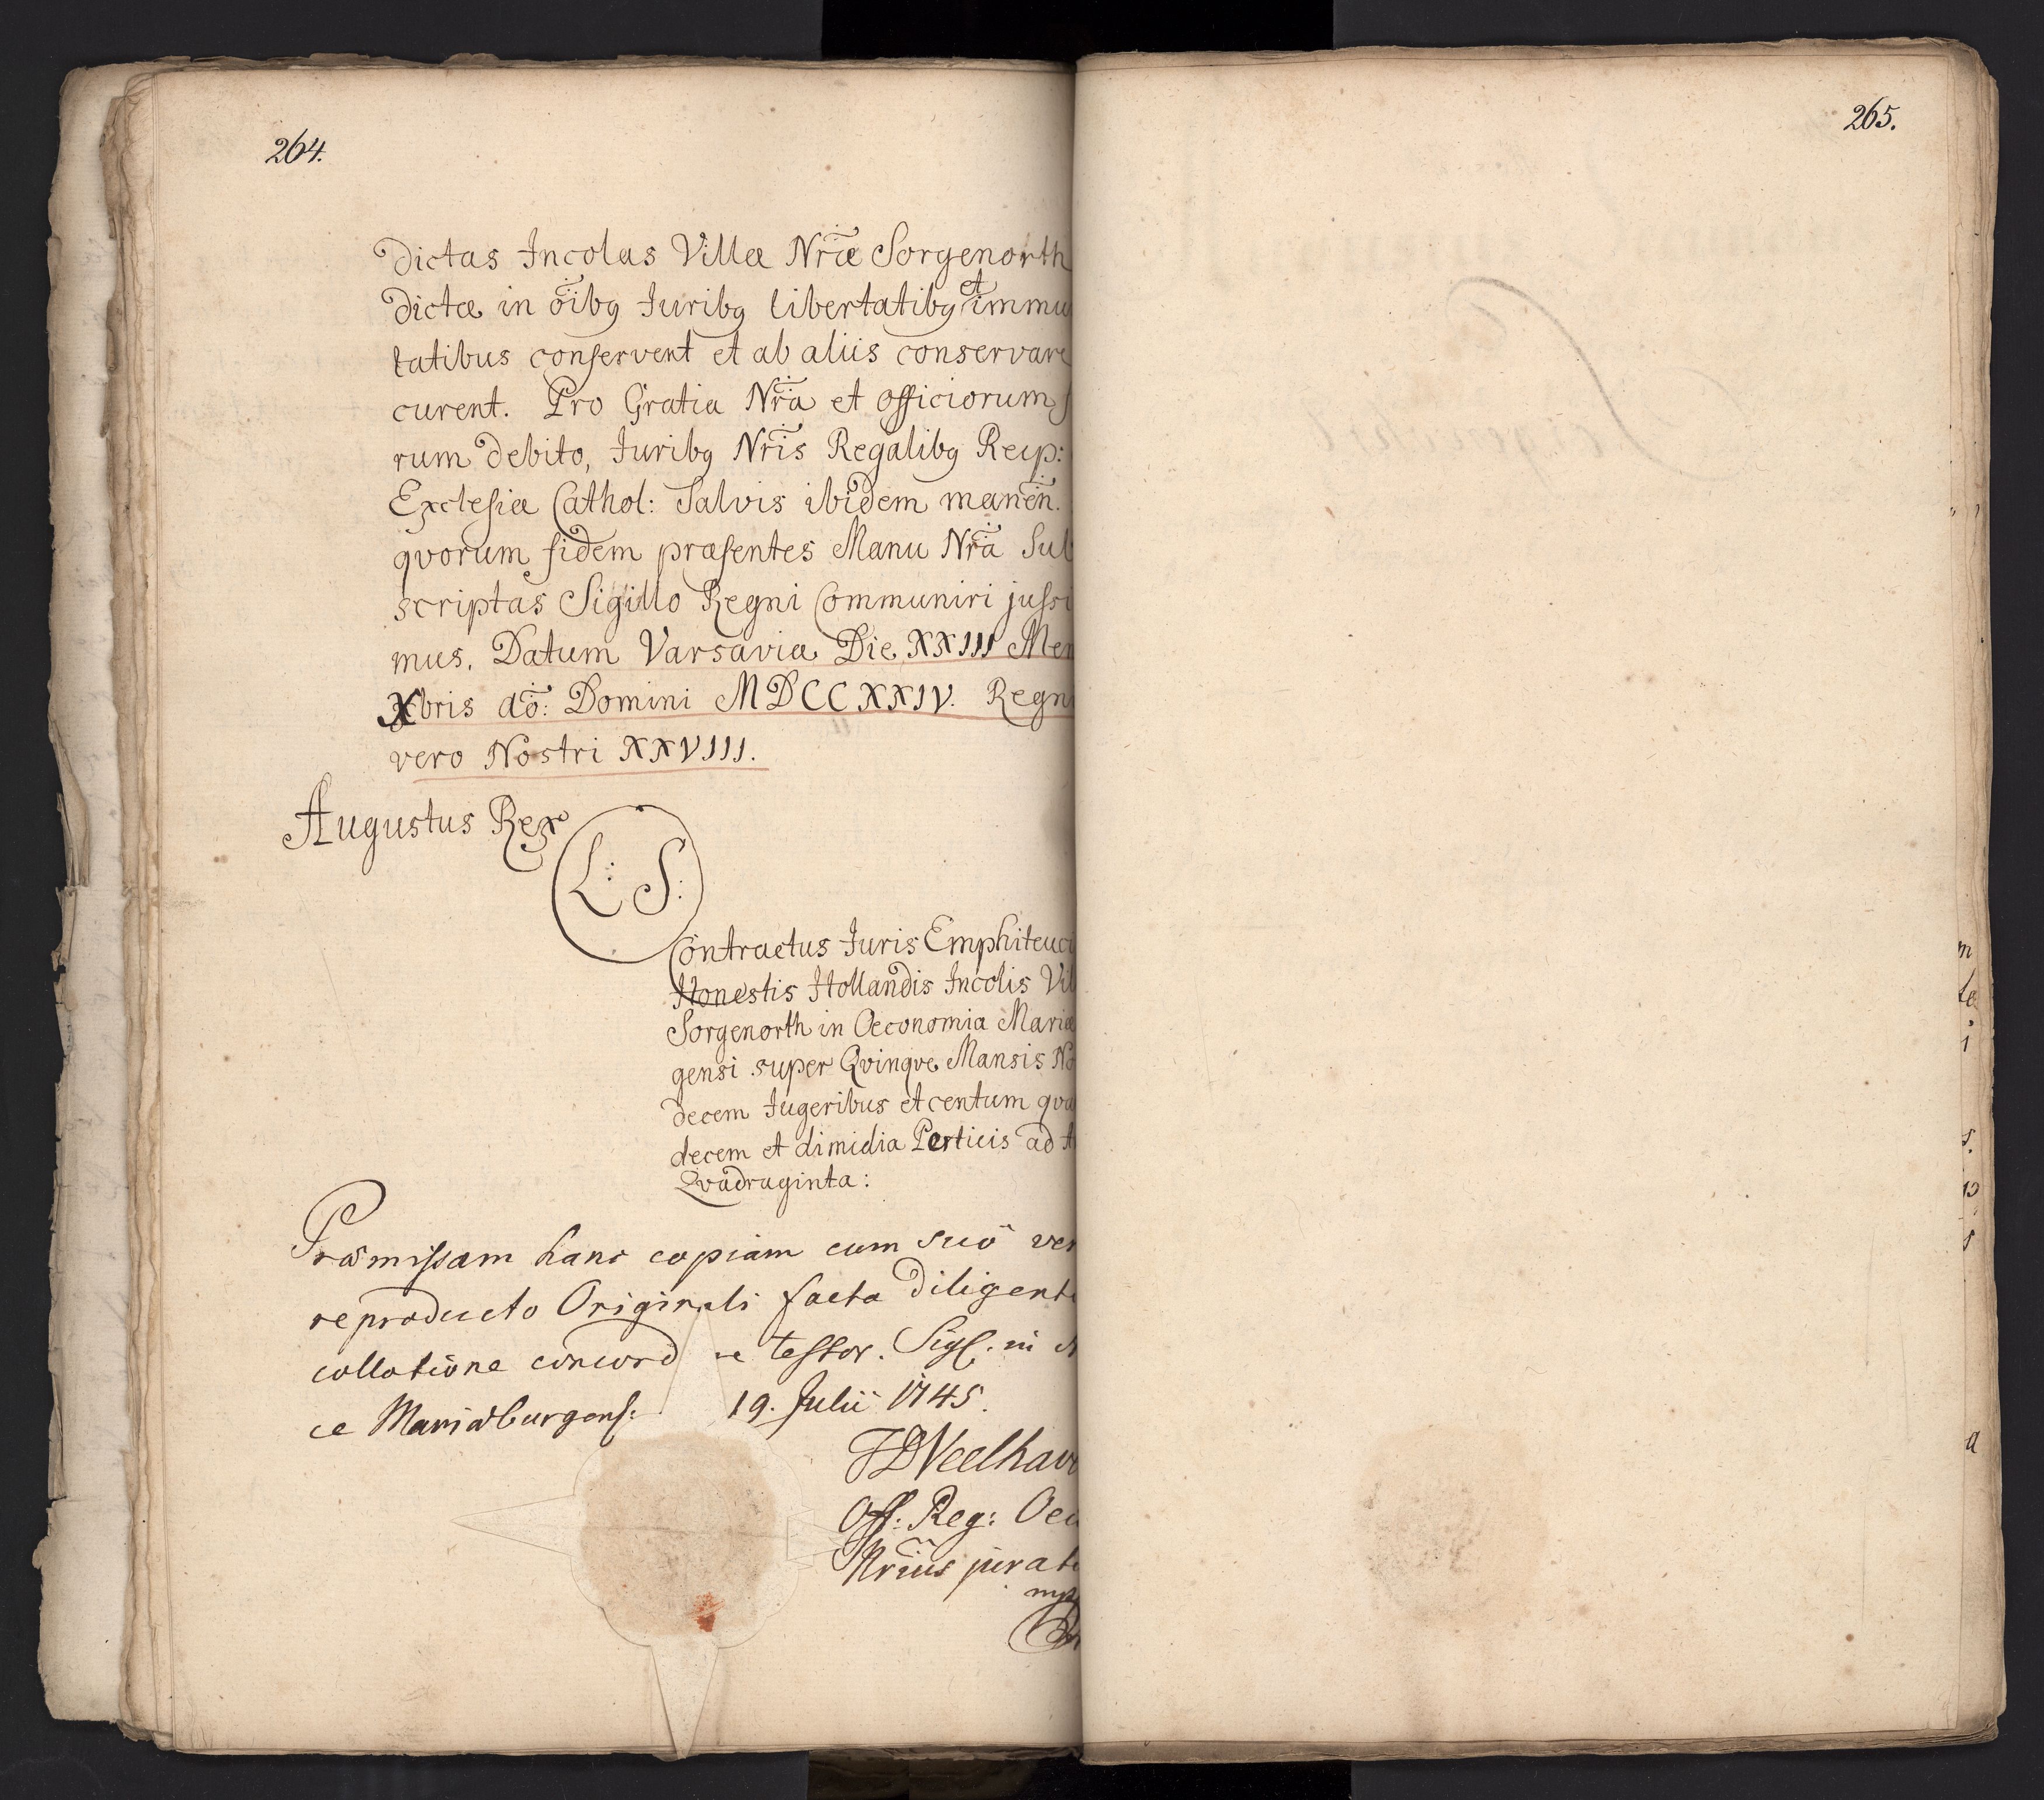 264.
Dictas Incolas Villæ Nr̄æ Sorgenorth
Dictæ in oi͞bꝯ Juribꝯ libertatibꝯ et immu
tatibus conservent et ab aliis conservare
curent. Pro Gratia Nr̄a et officiorum
rum Debito, Juribꝯ Nr̄is Regalibꝯ Reip:
Exclesiæ Cathol: Salvis ibidem manen̄.
qvorum fidem præsentes Manu Nr̄a Sub
scriptas Sigillo Regni Communiri jussi
mus. Datum Varsaviæ Die XXIII Men
Xbris aō: Domini MDCCXXIV. Regni
vero Nostri XXVIII.
Augustus Rex
L: S:
Contractus Juris Emphiteuci
Honestis Hollandis Incolis Vil
Sorgenorth in Oeconomia Mariæ
gensi super Qvinqve Mansis No
decem Jugeribus et centum qva
decem et dimidia Perticis ad A
Qvadraginta:
Præmissam hanc copiam cum suo ver
reproducto Originali facta Diligenti
collatione concord re testor. Sigl. in A
ce Mariæburgens: 19. Julii 1745.
Off: Reg: Oec
Nr̄ius jurat
mp
265.
m
te
i
s.
p
s
a